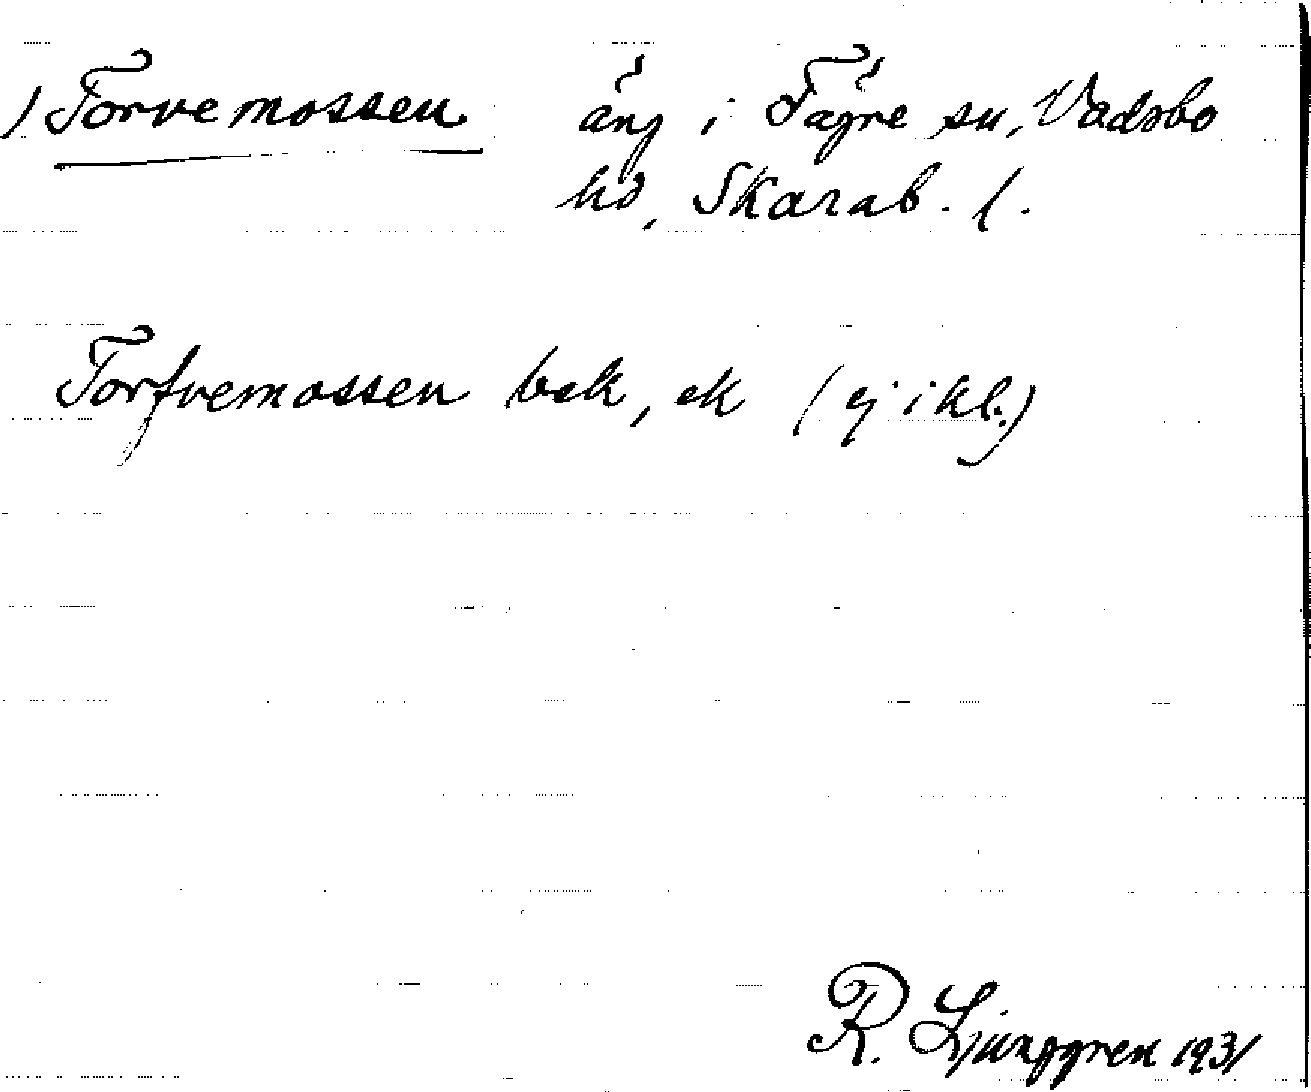 /Torvemossen äng i Fägre sn, Vadsbo
hd, Skarab. l.
Torfvemossen bek, ek (ej i kl.)
R. Ljunggren 1931